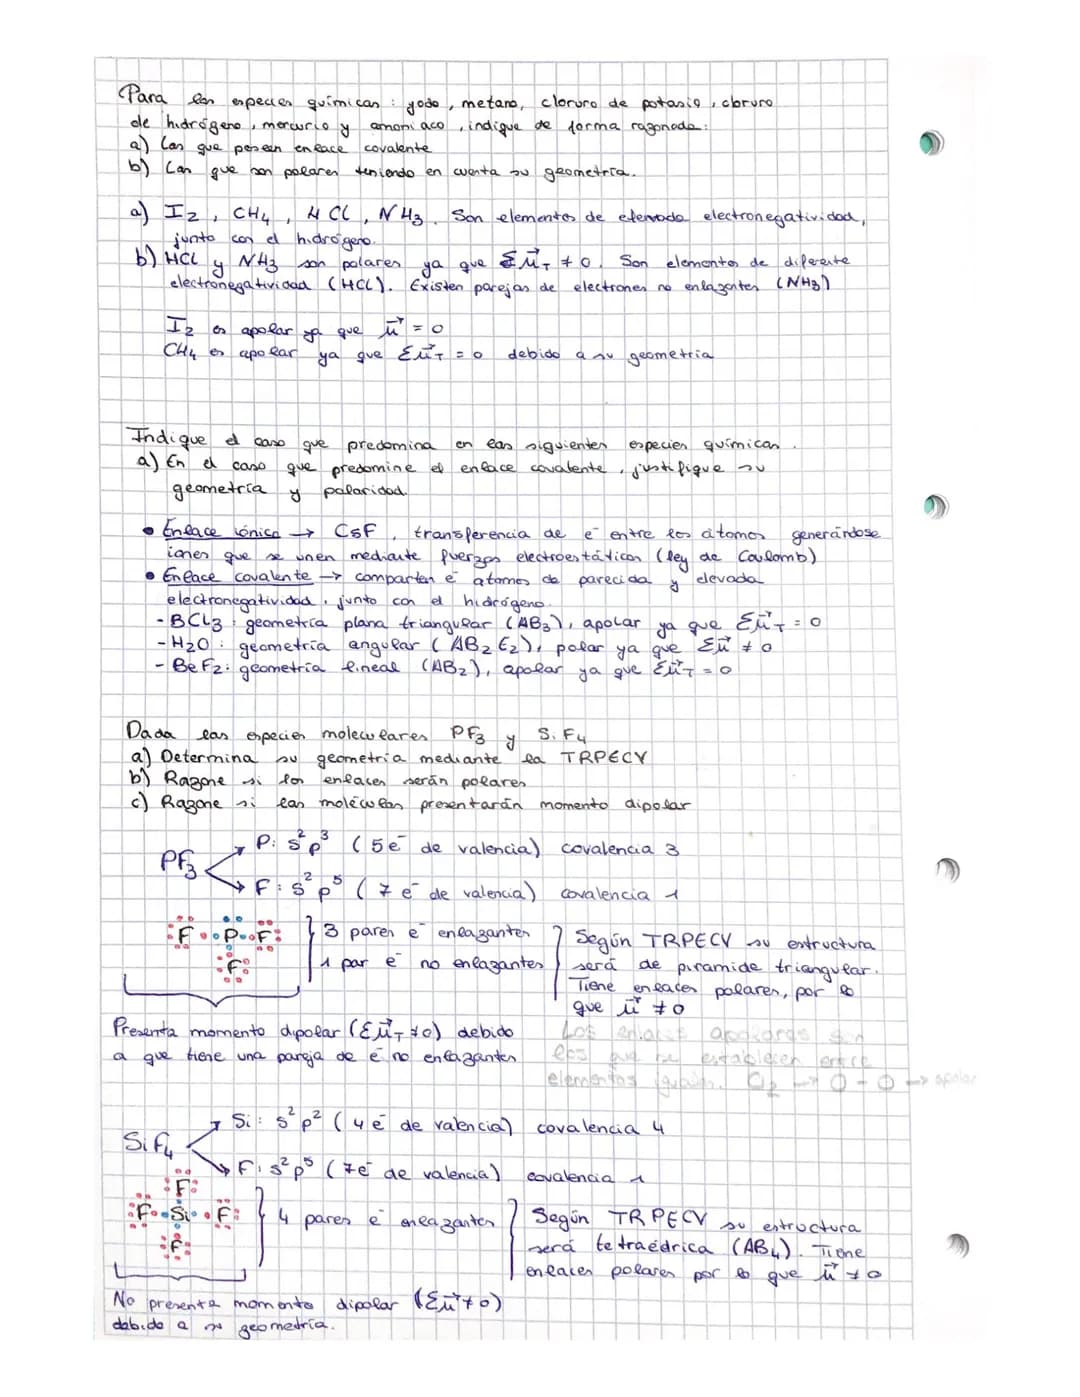 Para las especies químicas : yodo, metano, cloruro de potasio, cloruro
de hidrógeno, mercurio y amoniaco, indique de forma razonada:
a) Las que poseen enlace covalente
b) Las que son polares teniendo en cuenta su geometría.
a) I2, CH4, HCl, NH3. Son elementos de elevada electronegatividad,
junto con el hidrógeno.
b) HCl y NH3 son polares ya que Σμ⃗T ≠ 0. Son elementos de diferente
electronegatividad (HCl). Existen parejas de electrones no enlazantes (NH3)
I2 es apolar ya que μ⃗ = 0
CH4 es apolar ya que Σμ⃗T = 0 debido a su geometria
Indique el caso que predomina en las siguientes especies químicas.
a) En el caso que predomine el enlace covalente, justifique su
geometría y polaridad.
• Enlace iónico → CsF, transferencia de e⁻ entre los átomos generándose
iones que se unen mediante fuerzas electroestáticas (ley de Coulomb)
• Enlace covalente → comparten e⁻ átomos de parecida y elevada
electronegatividad, junto con el hidrógeno.
- BCl3 : geometría plana triangular (AB3), apolar ya que Σμ⃗T = 0
- H2O : geometría angular (AB2E2), polar ya que Σμ⃗ ≠ 0
- BeF2: geometría lineal (AB2), apolar ya que Σμ⃗T = 0
Dada las especies moleculares PF3 y SiF4
a) Determina su geometría mediante la TRPECV
b) Razone si los enlaces serán polares
c) Razone si las moléculas presentarán momento dipolar
P: s² p³ (5e⁻ de valencia) covalencia 3
PF3
F: s² p⁵ (7e⁻ de valencia) covalencia 1
F P F
F
3 pares e⁻ enlazantes
1 par e⁻ no enlazantes
Según TRPECV su estructura
será de piramide triangular.
Tiene enlaces polares, por lo
que μ⃗ ≠ 0
Presenta momento dipolar (Σμ⃗T ≠ 0) debido
a que tiene una pareja de e⁻ no enlazantes
Los enlaces apolares son
los que se establecen entre
elementos iguales. O2 → O - O → apolar
Si: s² p² (4e⁻ de valencia) covalencia 4
SiF4
F: s² p⁵ (7e⁻ de valencia) covalencia 1
F
F Si F
F
4 pares e⁻ enlazantes
Según TRPECV su estructura
será tetraédrica (AB4). Tiene
enlaces polares por lo que μ⃗ ≠ 0
No presenta momento dipolar (Σμ⃗ ≠ 0)
debido a su geometría.